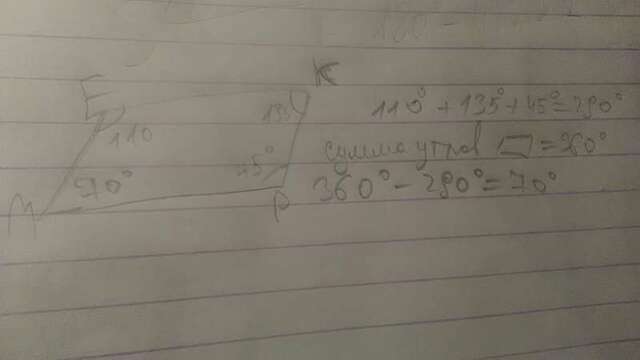 E
K
110
135
45°
70°
M
P
110° + 135° + 45° = 290°
сумма углов ▱ = 360°
360° - 290° = 70°